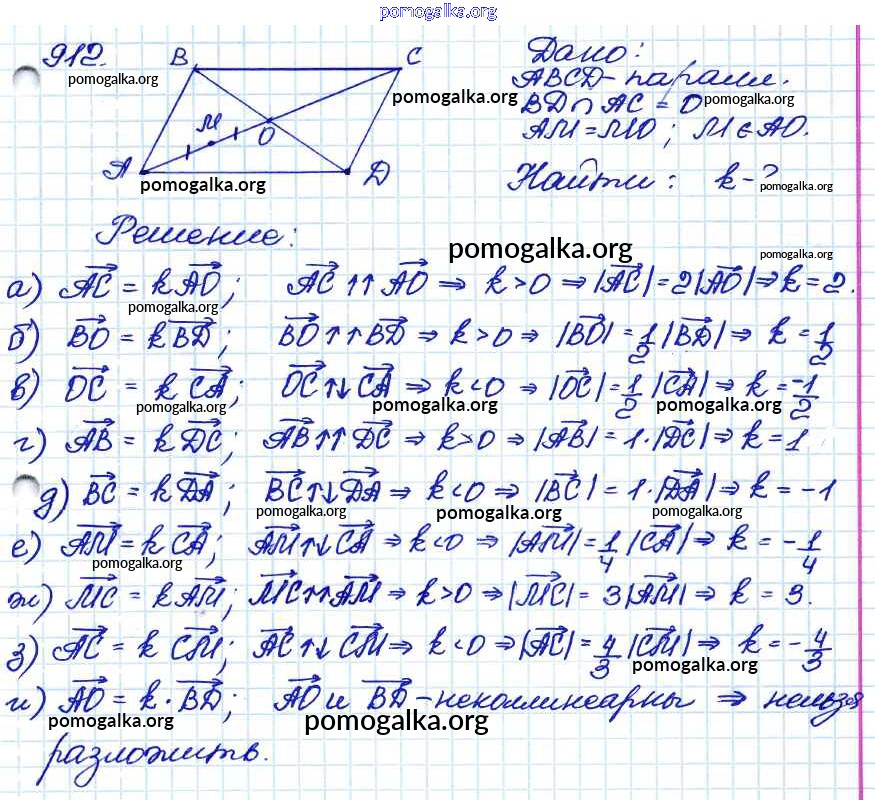 pomogalka.org
912.
pomogalka.org
B C
M O
A D
pomogalka.org
Дано:
ABCD - паралл.
pomogalka.org
BD ∩ AC = O pomogalka.org
AM = MO; M ∈ AO.
Найти: k - ? pomogalka.org
Решение:
pomogalka.org
pomogalka.org
а) AC⃗ = k AO⃗; AC⃗ ↑↑ AO⃗ ⇒ k > 0 ⇒ |AC⃗| = 2|AO⃗| ⇒ k = 2.
pomogalka.org
б) BO⃗ = k BD⃗; BO⃗ ↑↑ BD⃗ ⇒ k > 0 ⇒ |BO⃗| = 1/2 |BD⃗| ⇒ k = 1/2
в) OC⃗ = k CA⃗; OC⃗ ↑↓ CA⃗ ⇒ k < 0 ⇒ |OC⃗| = 1/2 |CA⃗| ⇒ k = -1/2
pomogalka.org pomogalka.org pomogalka.org
г) AB⃗ = k DC⃗; AB⃗ ↑↑ DC⃗ ⇒ k > 0 ⇒ |AB⃗| = 1 · |DC⃗| ⇒ k = 1
д) BC⃗ = k DA⃗; BC⃗ ↑↓ DA⃗ ⇒ k < 0 ⇒ |BC⃗| = 1 · |DA⃗| ⇒ k = -1
pomogalka.org pomogalka.org pomogalka.org
е) AM⃗ = k CA⃗; AM⃗ ↑↓ CA⃗ ⇒ k < 0 ⇒ |AM⃗| = 1/4 |CA⃗| ⇒ k = -1/4
pomogalka.org
ж) MC⃗ = k AM⃗; MC⃗ ↑↑ AM⃗ ⇒ k > 0 ⇒ |MC⃗| = 3|AM⃗| ⇒ k = 3.
з) AC⃗ = k CM⃗; AC⃗ ↑↓ CM⃗ ⇒ k < 0 ⇒ |AC⃗| = 4/3 |CM⃗| ⇒ k = -4/3
pomogalka.org
и) AO⃗ = k · BD⃗; AO⃗ и BD⃗ - неколлинеарны ⇒ нельзя
pomogalka.org pomogalka.org
разложить.